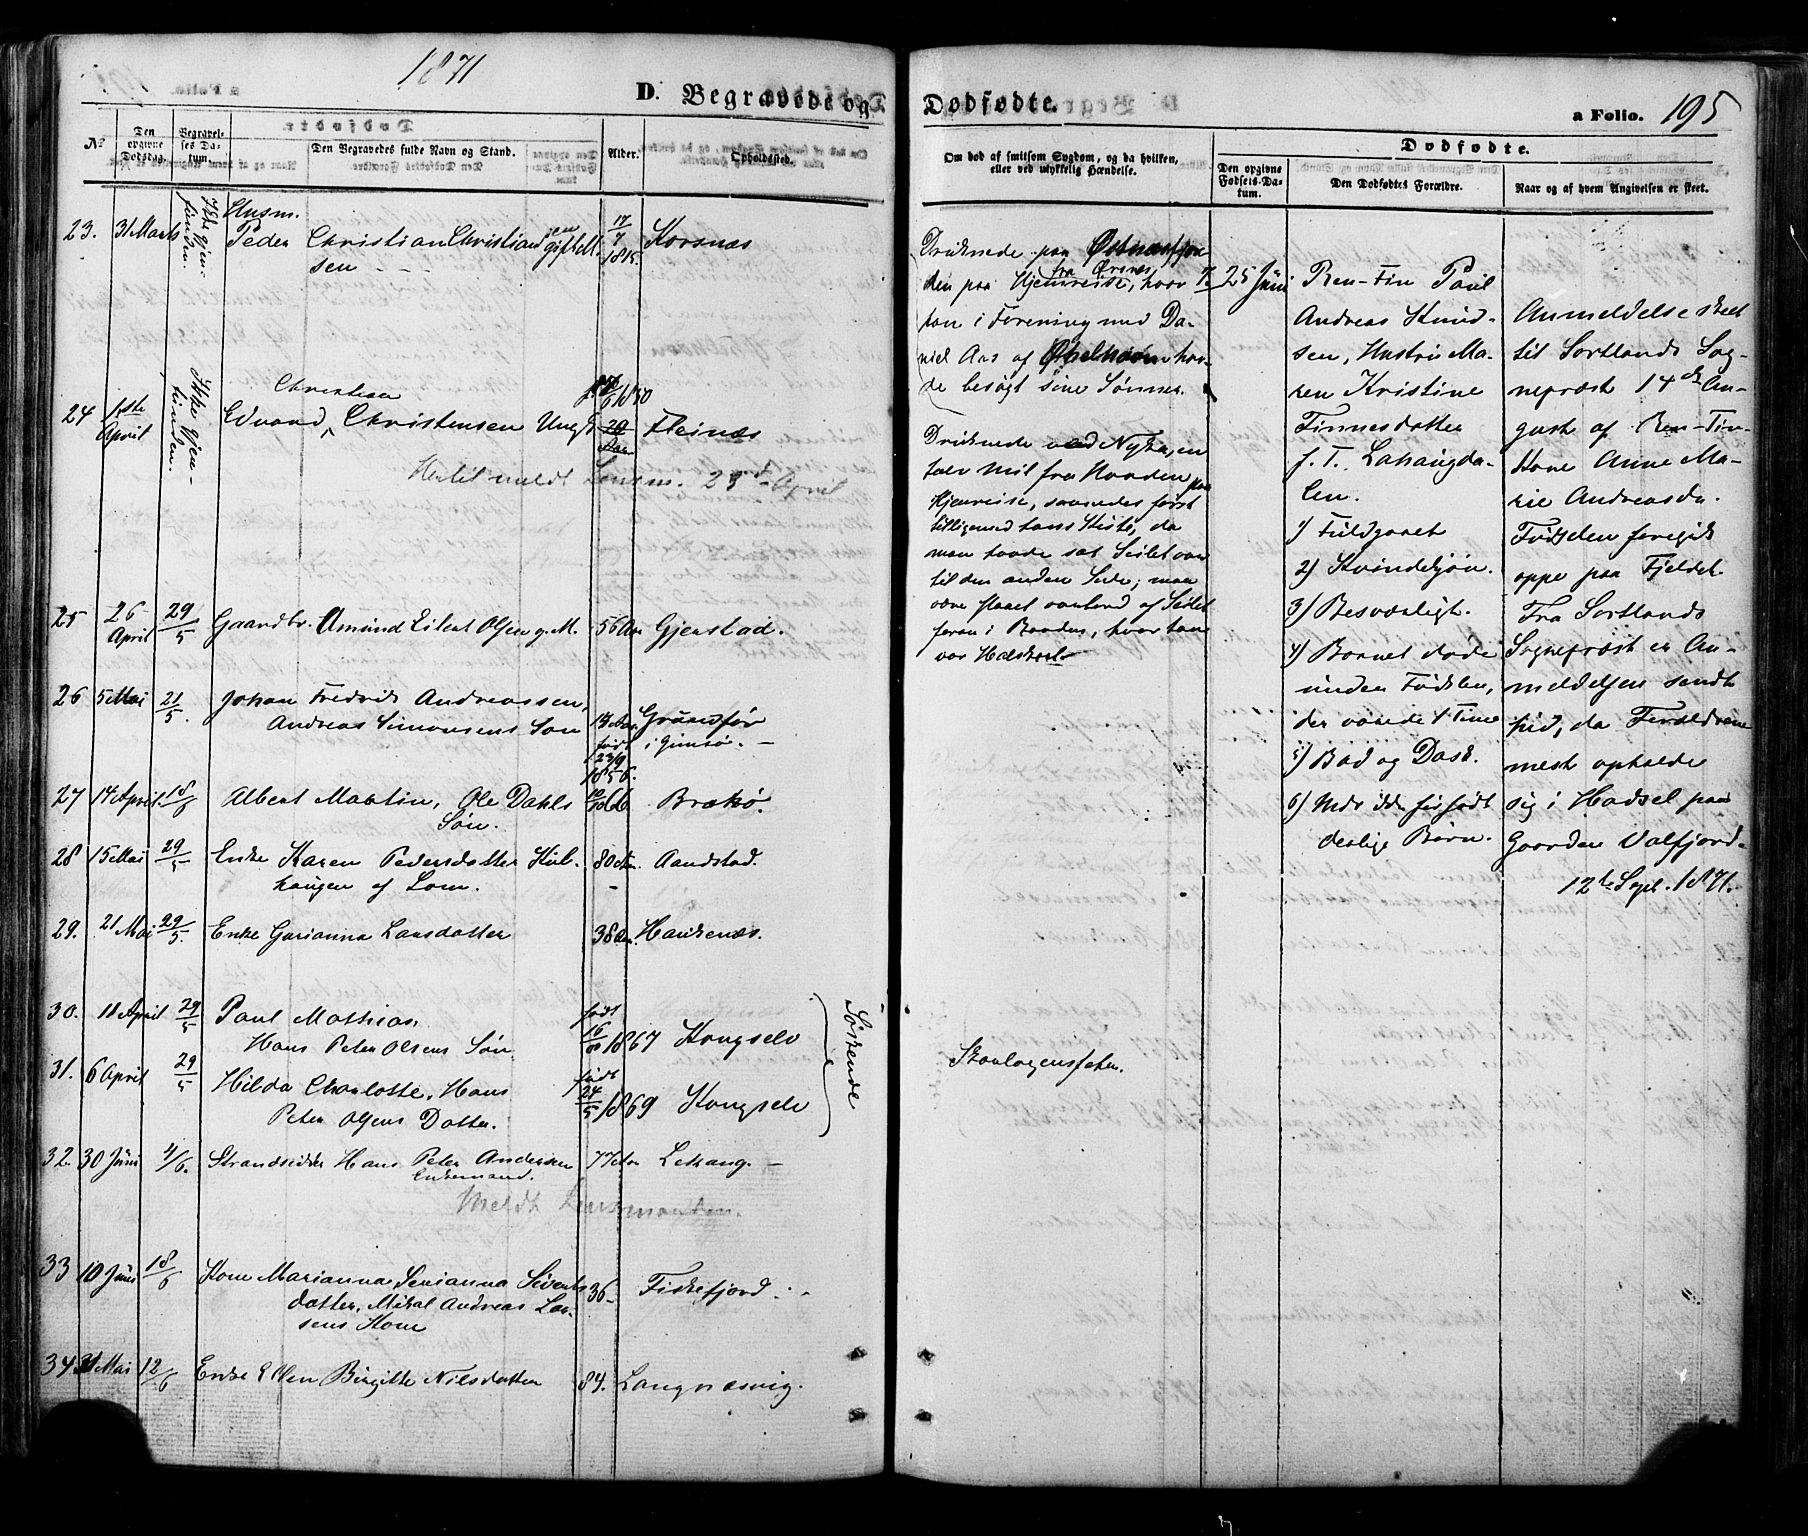 1871
D. Begravede og
Dødfødte.
a Folio. 195
No
Den opgivne Dødsdag.
Begravelses Datum.
Den Begravedes fulde Navn og Stand.
Alder.
Opholdssted.
Om død af smitsom Sygdom, og da hvilken, eller ved ulykkelig Hændelse.
Dødfødte.
Den opgivne Fødsels-Datum.
Den Dødfødtes Forældre.
Naar og af hvem Angivelsen er skeet.
23. 31 Marts Ikke gjenfunden. Husm.
Peder Christian Christian
sen gift M. 17/7 1815. Korsnæs
24 1ste April Ikke gjenfunden. Christian
Edvard, Christensen Ungk. 1850 Fleinæs
Hertil meldt Lensm. 23d April
25 26 April 29/5 Gaardbr. Amund Eilert Olsen g. M. 56 Aar Gjerstad.
26 5 Mai 21/5. Johan Fredrik Andreassen,
Andreas Simonsens Søn 14 Aar født 23/9 1856. Grundfør
i Gimsø.
27 14 April 18/5 Albert Martin, Ole Dahls
Søn. Brækø.
28 15 Mai 29/5 Enke Karen Pedersdatter Kul-
haugen af Lom. 80 Aar Aandstad.
29. 21 Mai 29/5. Enke Garianna Larsdatter 38 Aar. Haukenæs.
30. 18 April 29/5 Paul Mathias
Hans Peter Olsens Søn født 1867 Kongselv
31. 6 April 29/5 Hilda Charlotte, Hans
Peter Olsens Datter. født 24/5 1869 Kongselv
Søskende
32. 30 Juni 4/6. Strandsidder Hans Peter Andersen
Enkemand. 77 Aar Lekang.
Meldt Lensmanden.
33 10 Juni 18/6 Kone Marianna Serianna Siverts
datter, Mikal Andreas Lar-
sens Kone 36 Fiskefjord.
34 31 Mai 12/6 Enke Ellen Birgitte Nilsdatter 84. Langnæsvig.
Druknede paa Østnæsfjor-
den paa Hjemreise, fra Ørsnes, hvor
han i Forening med Da-
niel Aas af Øxelhavn hav-
de besøgt sine Sønner.
Druknede ved Nyken, en
halv Mil fra Noorden paa
Hjemreise, saaesdes først
tilligemed hans Kiste, da
man havde sat Seilet over
til den anden Side; maa
være slaaet overbord af Seilet
foran i Baaden, hvor han
var Halskarl
Skarlagensfeber.
1. 25 Juni Ren-Fin Paul
Andreas Knud-
sen, Hustru Ma-
ren Kristine
Finnesdatter
f. T. Lahaugda-
len.
1) Fuldbaaret
2) Kvindekjøn.
3) Besværligt.
4) Barnet døde
under Fødslen,
der varede 4 Time
5) Bad og Dask.
6) Mdr ikke før født
deslige Børn.
Anmeldelse skeet
til Sortlands Sog-
neprest 14de Au-
gust af Ren-Fin-
Kone Anne Ma-
rie Andreasda.
Fødselen foregik
oppe paa Fjeldet
Fra Sortlands
Sogneprest er An-
meldelsen sendt
hid, da Forældrene
mest opholde
sig i Hadsel paa
Gaarden Valfjord.
12te Sept. 1871.